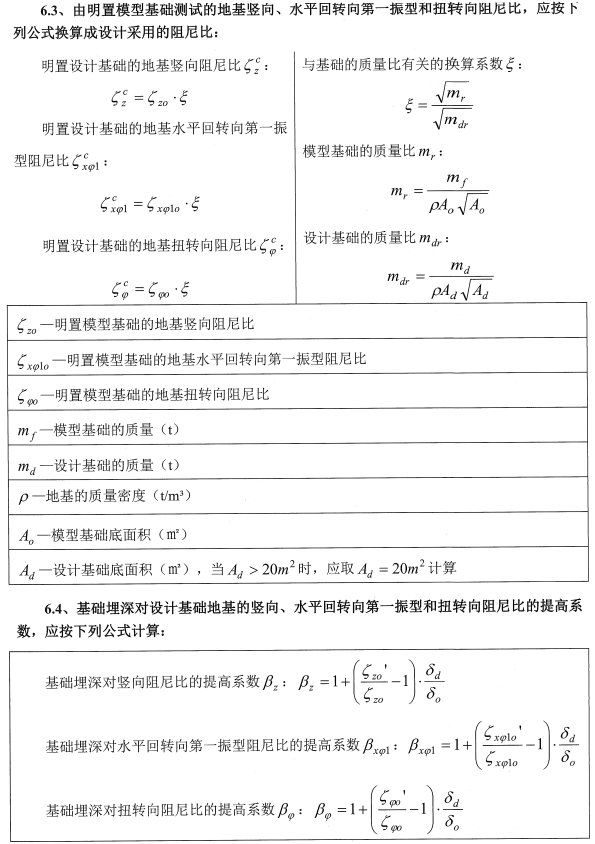 6.3、由明置模型基础测试的地基竖向、水平回转向第一振型和扭转向阻尼比，应按下
列公式换算成设计采用的阻尼比：
明置设计基础的地基竖向阻尼比 ζ_z^c：
ζ_z^c = ζ_zo · ξ
明置设计基础的地基水平回转向第一振
型阻尼比 ζ_xφ1^c：
ζ_xφ1^c = ζ_xφ1o · ξ
明置设计基础的地基扭转向阻尼比 ζ_φ^c：
ζ_φ^c = ζ_φo · ξ
与基础的质量比有关的换算系数 ξ：
ξ = √m_r / √m_dr
模型基础的质量比 m_r：
m_r = m_f / (ρA_o√A_o)
设计基础的质量比 m_dr：
m_dr = m_d / (ρA_d√A_d)
ζ_zo —明置模型基础的地基竖向阻尼比
ζ_xφ1o —明置模型基础的地基水平回转向第一振型阻尼比
ζ_φo —明置模型基础的地基扭转向阻尼比
m_f —模型基础的质量（t）
m_d —设计基础的质量（t）
ρ —地基的质量密度（t/m³）
A_o —模型基础底面积（㎡）
A_d —设计基础底面积（㎡），当 A_d > 20m² 时，应取 A_d = 20m² 计算
6.4、基础埋深对设计基础地基的竖向、水平回转向第一振型和扭转向阻尼比的提高系
数，应按下列公式计算：
基础埋深对竖向阻尼比的提高系数 β_z：β_z = 1 + (ζ_zo' / ζ_zo − 1) · δ_d / δ_o
基础埋深对水平回转向第一振型阻尼比的提高系数 β_xφ1：β_xφ1 = 1 + (ζ_xφ1o' / ζ_xφ1o − 1) · δ_d / δ_o
基础埋深对扭转向阻尼比的提高系数 β_φ：β_φ = 1 + (ζ_φo' / ζ_φo − 1) · δ_d / δ_o